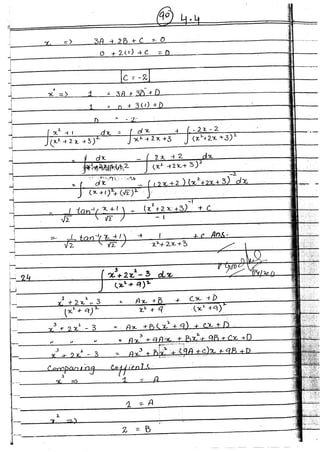 90 4.4
x => 3A + 2B + C = 0
0 + 2(1) + C = 0
C = -2
x° => 1 = 3A + 3B + D
1 = 0 + 3(1) + D
D = -2
∫ x² + 1 / (x² + 2x + 3)² dx = ∫ dx / x² + 2x + 3 + ∫ -2x - 2 / (x² + 2x + 3)²
= ∫ dx - ∫ 2x + 2 / (x² + 2x + 3)² dx
= ∫ dx / (x + 1)² + (√2)² - ∫ (2x + 2)(x² + 2x + 3)⁻² dx
= 1/√2 tan⁻¹ (x + 1 / √2) - (x² + 2x + 3)⁻¹ / -1 + C
= 1/√2 tan⁻¹ (x + 1 / √2) + 1 / x² + 2x + 3 + C Ans.
24 ∫ x³ + 2x² - 3 / (x² + 9)² dx
x³ + 2x² - 3 / (x² + 9)² = Ax + B / x² + 9 + Cx + D / (x² + 9)²
x³ + 2x² - 3 = Ax + B (x² + 9) + Cx + D
" " " = Ax³ + 9Ax + Bx² + 9B + Cx + D
x³ + 2x² - 3 = Ax³ + Bx² + (9A + C)x + 9B + D
Comparing Coefficients
x³ => 1 = A
1 = A
x² =>
2 = B